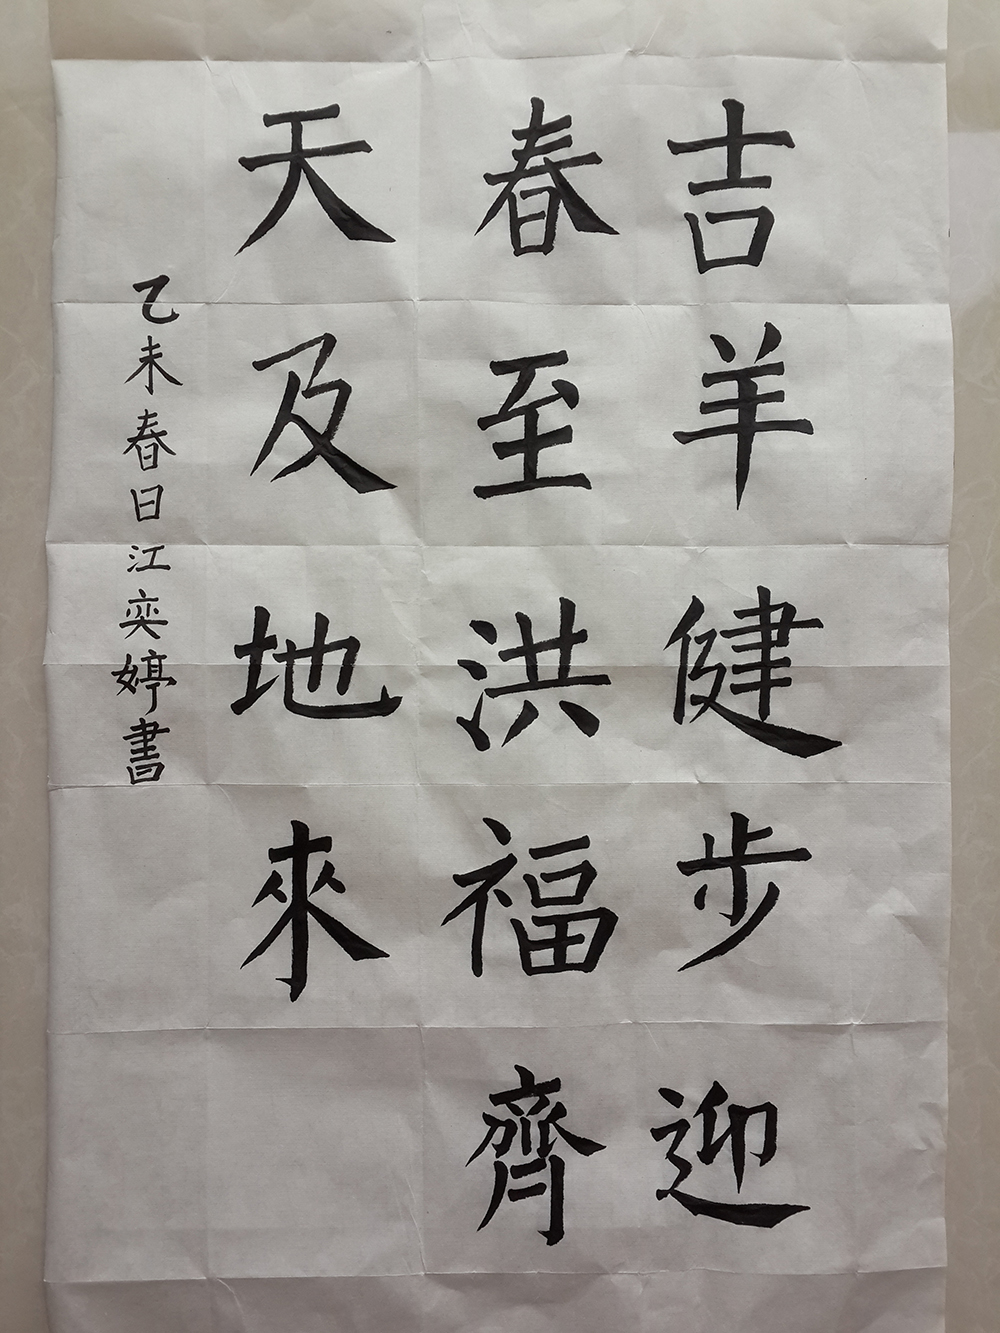 吉羊健步迎
春至洪福齊
天及地來
乙未春日江奕婷書